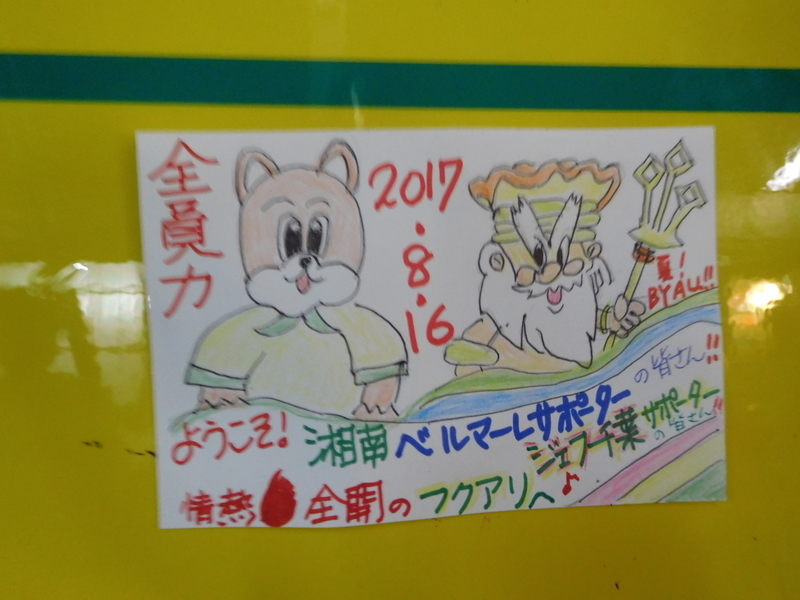 全員力
2017.8.16
夏!
BY ALL!!
ようこそ! 湘南ベルマーレサポーターの皆さん!!
ジェフ千葉サポーターの皆さん!!
情熱全開のフクアリへ♪